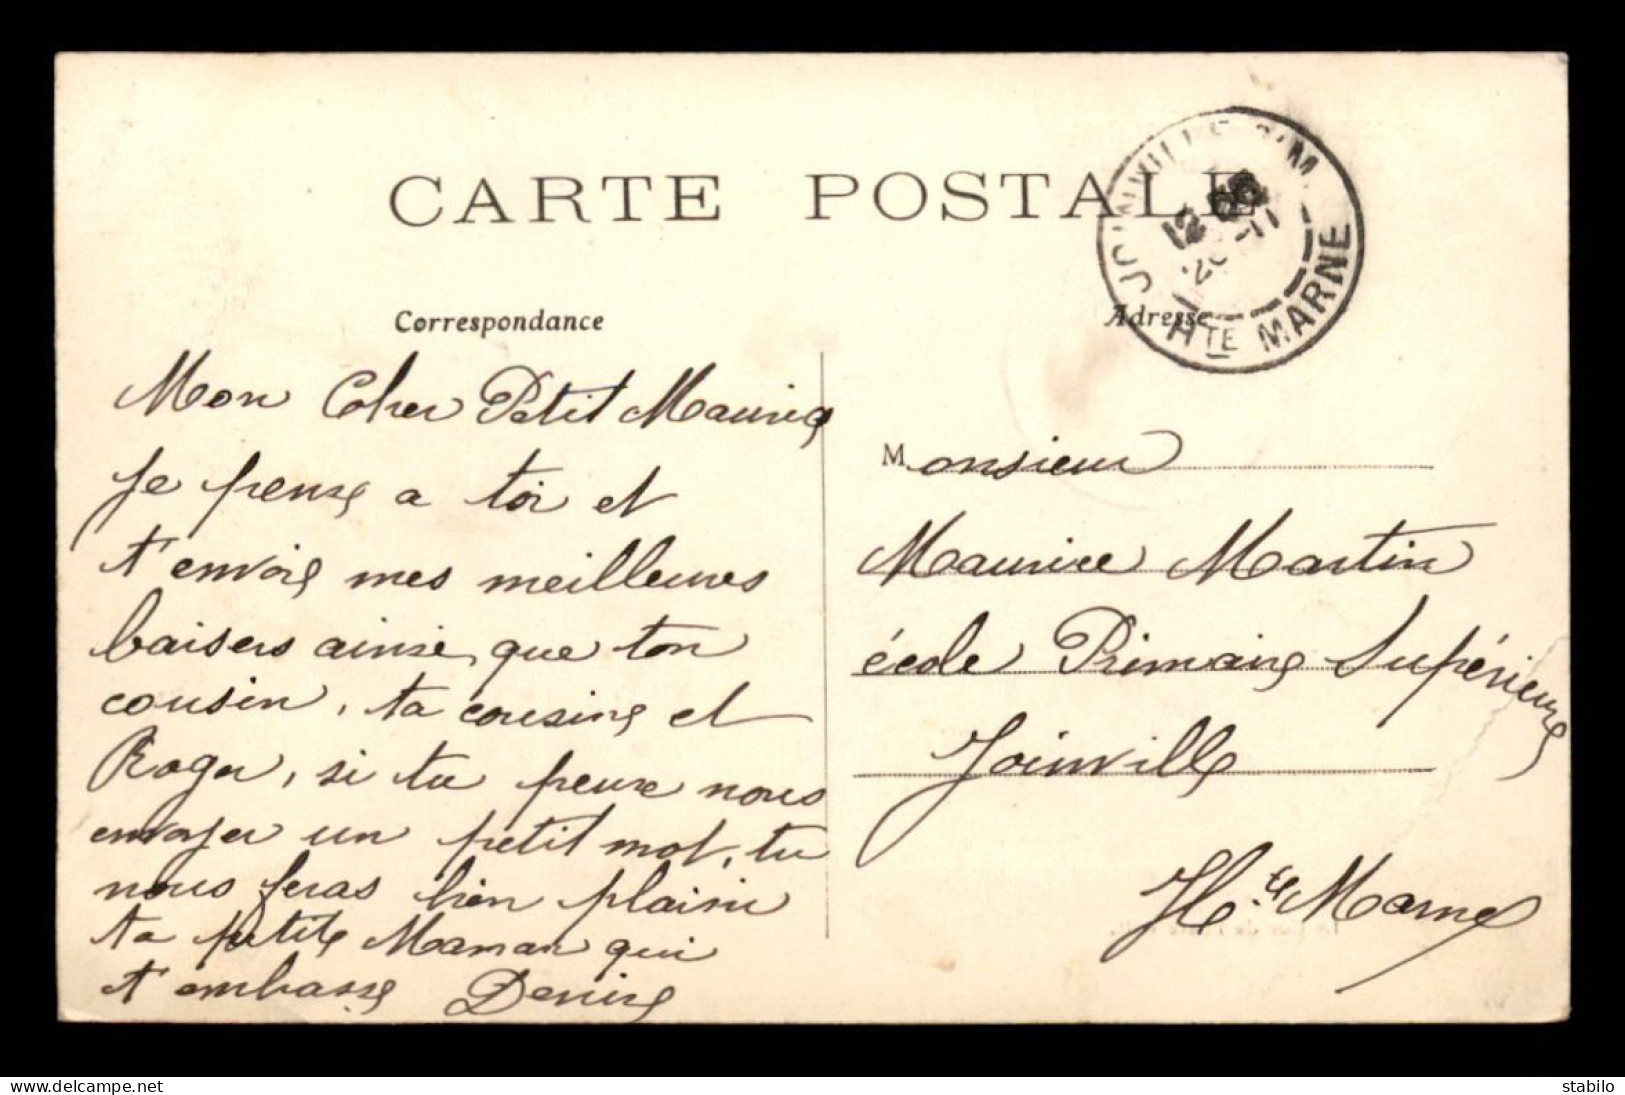 CARTE POSTALE
JOINVILLE S/M
12
HTE MARNE
Correspondance
Adresse
Mon Cher Petit Maurice
Je pense a toi et
t'envoie mes meilleures
baisers ainsi que ton
cousin, ta cousine et
Roger, si tu peuxe nous
envoyer un petit mot, tu
nous feras bien plaisir
ta petite Maman qui
t'embrasse Denise
Monsieur
Maurice Martin
école Primaire Supérieure
Joinville
Hte Marne
delcampe.net
stabilo